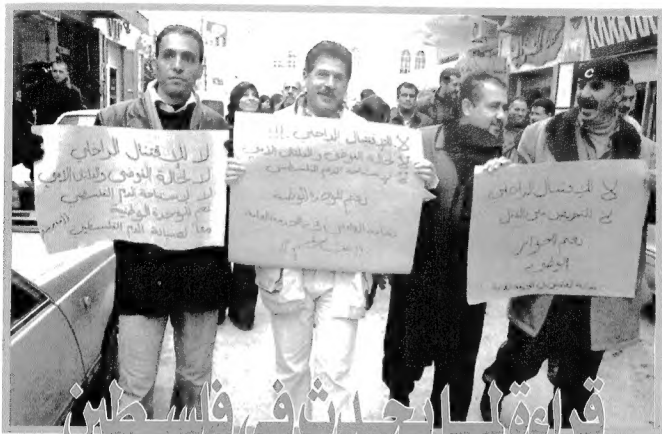 لا للاقتتال الداخلي
لا لحالة الفوضى والفلتان الأمني
لا لاستباحة الدم الفلسطيني
نعم للوحدة الوطنية
معاً لصيانة الدم الفلسطيني
لا للاقتتال الداخلي !!!
لا لحالة الفوضى والفلتان الأمني
لا لاستباحة الدم الفلسطيني
نعم للوحدة الوطنية
نقابة العاملين في الخدمات العامة
لا للاقتتال الداخلي
لا للتحريض على القتل
نعم للحوار
الوطني
قراءة لما يحدث في فلسطين